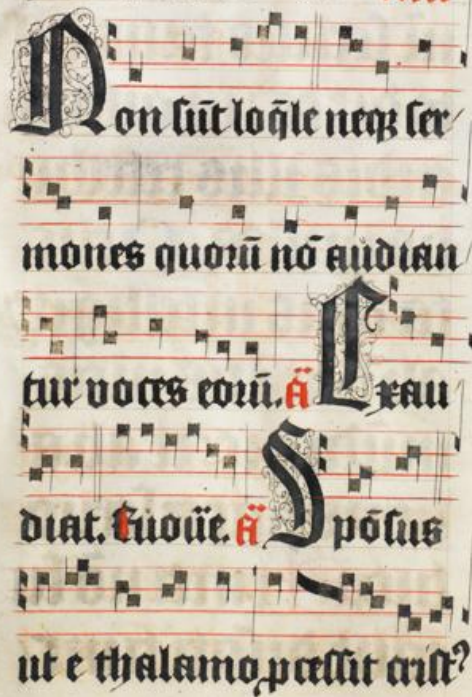 Non sūt loq̄le neqꝫ ser
mones quorū nō audian
tur voces eorū. ā Exau
diat. Euoūe. ā Spōsus
ut e thalamo ꝓcessit crist⁹